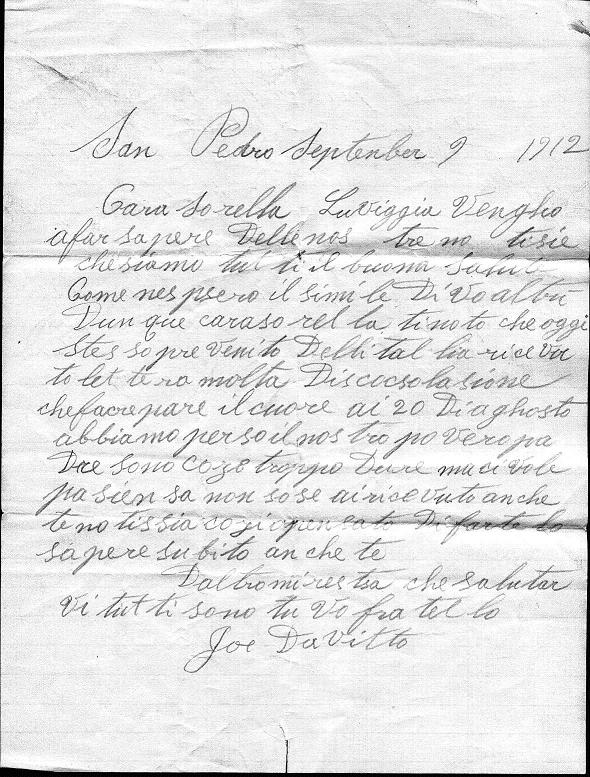 San Pedro September 9 1912
Cara Sorella Luviggia Vengho
afar sapere Delle nos tre no tisie
che siamo tut ti il buona salut
Come nes psero il simile Di Vo altri
Dun que cara so rel la ti noto che oggi
stes so pre venito Delli tal lia rice vu
to let te ra molta Discocsolasione
che fa crepare il cuore ai 20 Di aghosto
abbiamo perso il nos tro po vero pa
Dre sono coze troppo Dure ma ci vole
pa sien sa non so se ai rice vuto anche
te no tissia cozi o pensato Di farte lo
sapere su bito an che te
Daltro mi resta che salutar
Vi tut ti sono tu Vo fra tel lo
Joe DaVitto